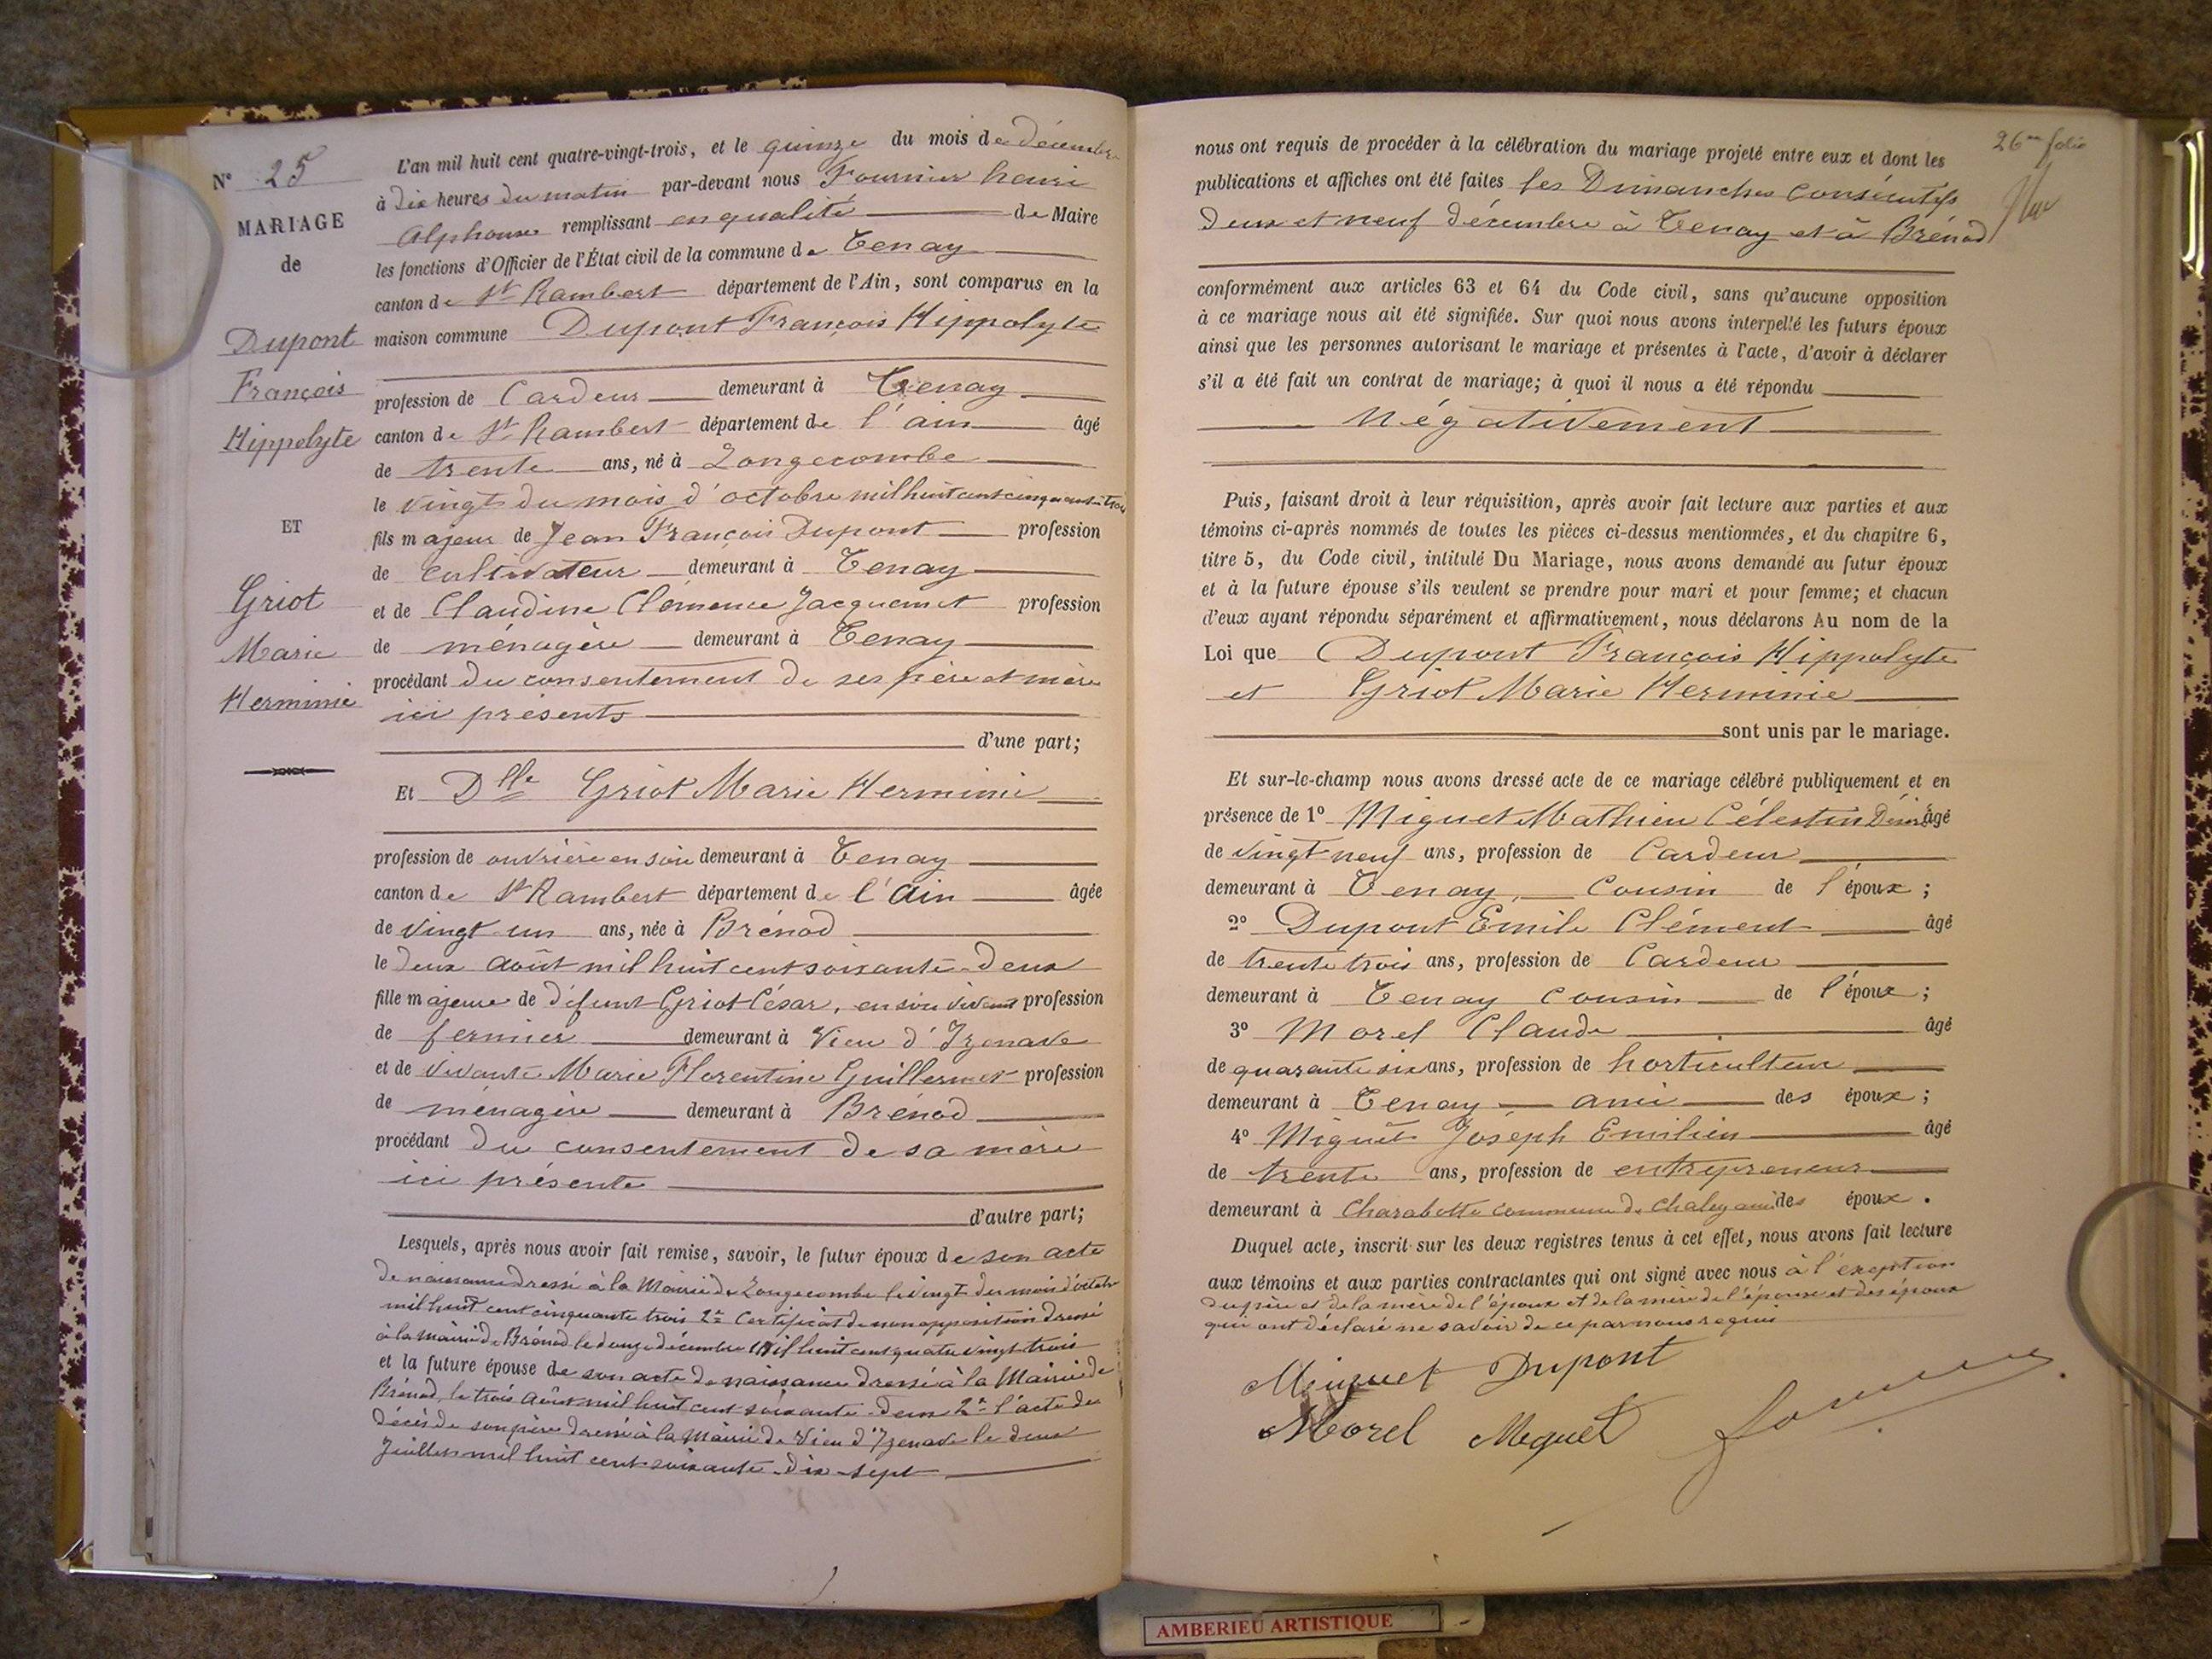 N° 25
MARIAGE
de
Dupont
François
Hippolyte
ET
Griot
Marie
Herminie
L'an mil huit cent quatre-vingt-trois, et le quinze du mois de décembre
à dix heures du matin par-devant nous Fournier henri
Alphonse remplissant en qualité de Maire
les fonctions d'Officier de l'État civil de la commune de Tenay
canton de St Rambert département de l'Ain, sont comparus en la
maison commune Dupont François Hippolyte
profession de Cardeur demeurant à Tenay
canton de St Rambert département de l'ain âgé
de trente ans, né à Longecombe
le vingt du mois d'octobre mil huit cent cinquante trois
fils majeur de Jean François Dupont profession
de cultivateur demeurant à Tenay
et de Claudine Clémence Jacquemet profession
de ménagère demeurant à Tenay
procédant du consentement de ses père et mère
ici présents
d'une part;
Et Dlle Griot Marie Herminie
profession de ouvrière en soie demeurant à Tenay
canton de St Rambert département de l'Ain âgée
de vingt un ans, née à Brénod
le deux août mil huit cent soixante-deux
fille majeure de défunt Griot César, en son vivant profession
de fermier demeurant à Vieu d'Izenave
et de vivante Marie Florentine Guillermet profession
de ménagère demeurant à Brénod
procédant du consentement de sa mère
ici présente
d'autre part;
Lesquels, après nous avoir fait remise, savoir, le futur époux de son acte
de naissance dressé à la Mairie de Longecombe le vingt du mois d'octobre
mil huit cent cinquante trois 2° Certificat de non opposition dressé
à la mairie de Brénod le douze décembre mil huit cent quatre vingt trois
et la future épouse de son acte de naissance dressé à la Mairie de
Brénod, le trois Août mil huit cent soixante-deux 2° l'acte de
décès de son père dressé à la Mairie de Vieu d'Izenave le deux
Juillet mil huit cent soixante-dix-sept
26me folio
nous ont requis de procéder à la célébration du mariage projeté entre eux et dont les
publications et affiches ont été faites les Dimanches consécutifs
deux et neuf décembre à Tenay et à Brénod
conformément aux articles 63 et 64 du Code civil, sans qu'aucune opposition
à ce mariage nous ait été signifiée. Sur quoi nous avons interpellé les futurs époux
ainsi que les personnes autorisant le mariage et présentes à l'acte, d'avoir à déclarer
s'il a été fait un contrat de mariage; à quoi il nous a été répondu
négativement
Puis, faisant droit à leur réquisition, après avoir fait lecture aux parties et aux
témoins ci-après nommés de toutes les pièces ci-dessus mentionnées, et du chapitre 6,
titre 5, du Code civil, intitulé Du Mariage, nous avons demandé au futur époux
et à la future épouse s'ils veulent se prendre pour mari et pour femme; et chacun
d'eux ayant répondu séparément et affirmativement, nous déclarons Au nom de la
Loi que Dupont François Hippolyte
et Griot Marie Herminie
sont unis par le mariage.
Et sur-le-champ nous avons dressé acte de ce mariage célébré publiquement et en
présence de 1° Miguet Mathieu Célestin Désiré âgé
de vingt neuf ans, profession de Cardeur
demeurant à Tenay, Cousin de l'époux;
2° Dupont Emile Clément âgé
de trente trois ans, profession de Cardeur
demeurant à Tenay cousin de l'époux;
3° Morel Claude âgé
de quarante six ans, profession de horticulteur
demeurant à Tenay ami des époux;
4° Miguet Joseph Emilien âgé
de trente ans, profession de entrepreneur
demeurant à Charabotte commune de Chaley ami des époux.
Duquel acte, inscrit sur les deux registres tenus à cet effet, nous avons fait lecture
aux témoins et aux parties contractantes qui ont signé avec nous à l'exeption
du père et de la mère de l'époux et de la mère de l'épouse et des époux
qui ont déclaré ne savoir de ce par nous requis
Miguet Dupont
Morel Miguet
AMBERIEU ARTISTIQUE